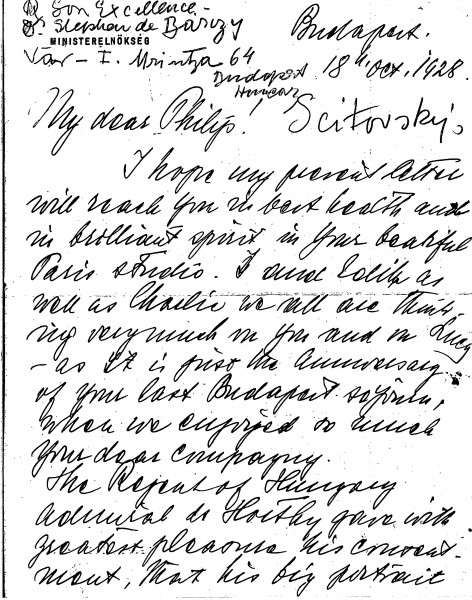 Son Excellence -
Dr. Stephan de Bárczy
MINISTERELNÖKSÉG
Vár - I. Uri utza 64
Budapest
Hungary
Budapest.
18th Oct, 1928.
My dear Philip! Scitovsky's
I hope my present letter
will reach you in best health and
in brilliant spirit in your beatiful
Paris studio. I and Edith as
well as Charlie we all are think-
ing very much on you and on Lucy
- as it is just the anniversary
of your last Budapest sojourn,
when we enjoyed so much
your dear compagny.
The Regent of Hungary
Admiral de Horthy gave with
greatest pleasure his consent-
ment, that his big portrait